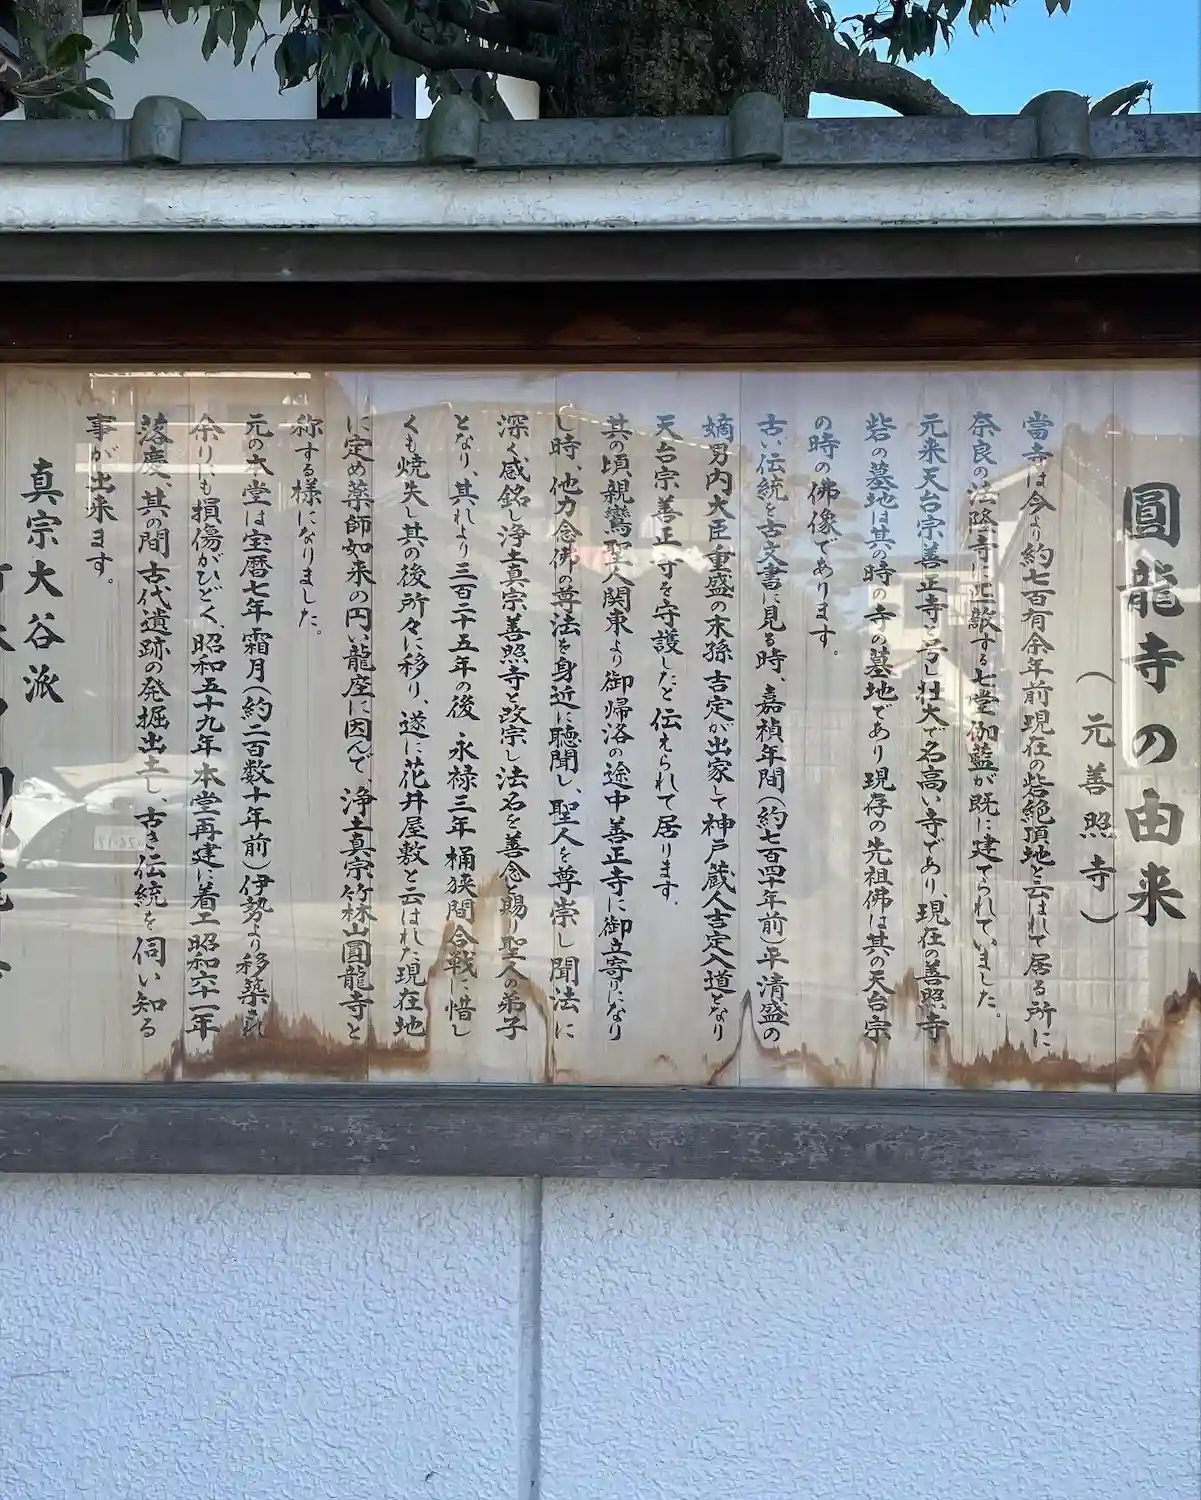 圓龍寺の由来
（元善照寺）
當寺は今より約七百有余年前現在の砦絶頂地と云われて居る所に
奈良の法隆寺に匹敵する七堂伽藍が既に建てられていました。
元来天台宗善正寺と号し壮大で名高い寺であり、現在の善照寺
砦の墓地は其の時の寺の墓地であり現存の先祖佛は其の天台宗
の時の佛像であります。
古い伝統を古文書に見る時、嘉禎年間（約七百四十年前）平清盛の
嫡男内大臣重盛の末孫吉定が出家して神戸蔵人吉定入道となり
天台宗善正寺を守護したと伝えられて居ります。
其の頃親鸞聖人関東より御帰洛の途中善正寺に御立寄りになり
し時、他力念佛の尊法を身近に聴聞し、聖人を尊崇し聞法に
深く感銘し浄土真宗善照寺と改宗し法名を善念と賜り聖人の弟子
となり、其れより三百二十五年の後、永禄三年桶狭間合戦に惜し
くも焼失し其の後所々に移り、遂に花井屋敷と云はれた現在地
に定め薬師如来の円い龍座に因んで、浄土真宗竹林山圓龍寺と
称する様になりました。
元の本堂は宝暦七年霜月（約二百数十年前）伊勢より移築され
余りにも損傷がひどく、昭和五十九年本堂再建に着工昭和六十一年
落慶、其の間古代遺跡の発掘出土し、古き伝統を伺い知る
事が出来ます。
真宗大谷派